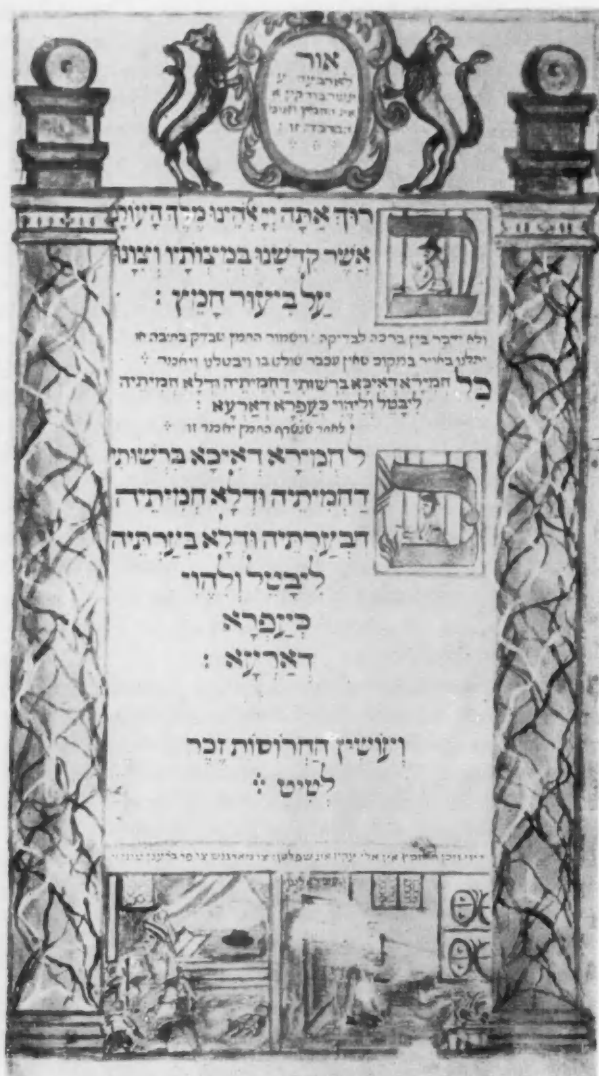 אור
לארבעה ע
עשר בודקין א
את החמץ
הברכה זו
רוּךְ אַתָּה יְיָ אֱלֹהֵינוּ מֶלֶךְ הָעוֹלָ
אֲשֶׁר קִדְּשָׁנוּ בְּמִצְוֹתָיו וְצִוָּנוּ
עַל בִּיעוּר חָמֵץ :
ולא ידבר בין ברכה לבדיקה וישמור החמץ שבדק בתיבה או
יתלנו באויר במקום שאין עכבר שולט בו ויבטלנו ויאמר
כׇּל חֲמִירָא דְאִיכָּא בִרְשׁוּתִי דַחֲמִיתֵיהּ וּדְלָא חֲמִיתֵיהּ
לִיבָּטֵל וְלֶיהֱוֵי כְּעַפְרָא דְאַרְעָא :
לאחר שנשרף החמץ יאמר זו
ל חֲמִירָא דְאִיכָּא בִרְשׁוּתִי
דַחֲמִיתֵיהּ וּדְלָא חֲמִיתֵיהּ
דְּבִעַרְתֵּיהּ וּדְלָא בִעַרְתֵּיהּ
לִיבָּטֵל וְלֶהֱוֵי
כְּעַפְרָא
דְאַרְעָא :
וְעוֹשִׂין הַחֲרוֹסוֹת זֵכֶר
לְטִיט